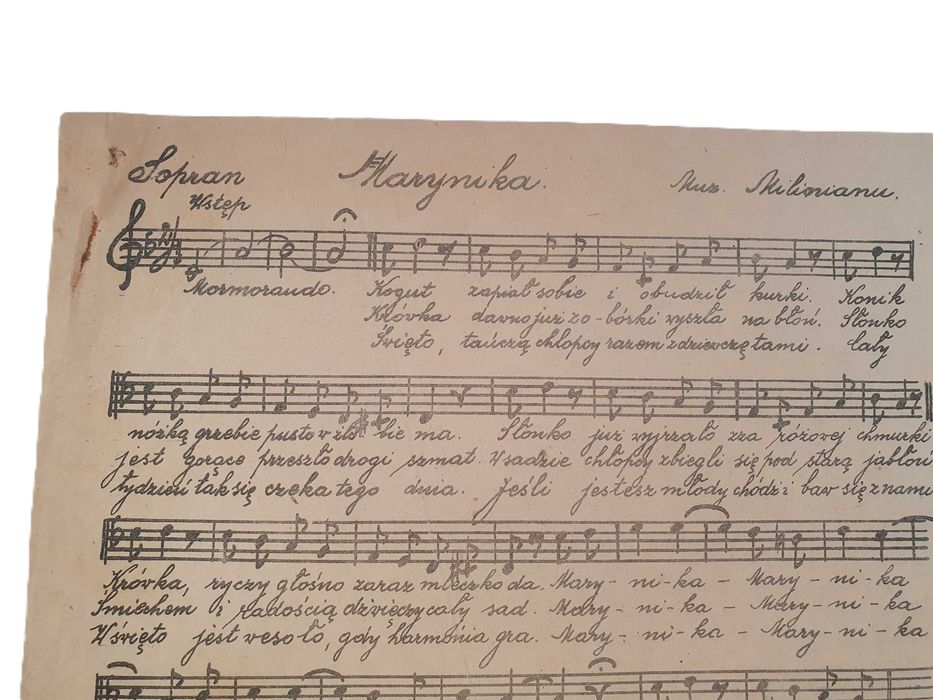 Sopran Marynika. Muz. Milinianu.
Wstęp
Mormorando. Kogut zapiał sobie i obudził kurki. Konik
Krówka dawno już z o-bórki wyszła na błoń. Słonko
Święto, tańczą chłopcy razem z dziewczętami. Cały
nóżką grzebie pusto w żło bie ma. Słonko już wyjrzało zza różowej chmurki
jest gorące przeszło drogi szmat. W sadzie chłopcy zbiegli się pod starą jabłoń
tydzień tak się czeka tego dnia. Jeśli jesteś młody chódź i baw się z nami
Krówka, ryczy głośno zaraz mleczko da. Mary - ni - ka - Mary - ni - ka
Śmiechem i radością dźwięczy cały sad. Mary - ni - ka - Mary - ni - ka
W święto jest weso ło, gdy harmonia gra. Mary - ni - ka - Mary - ni - ka